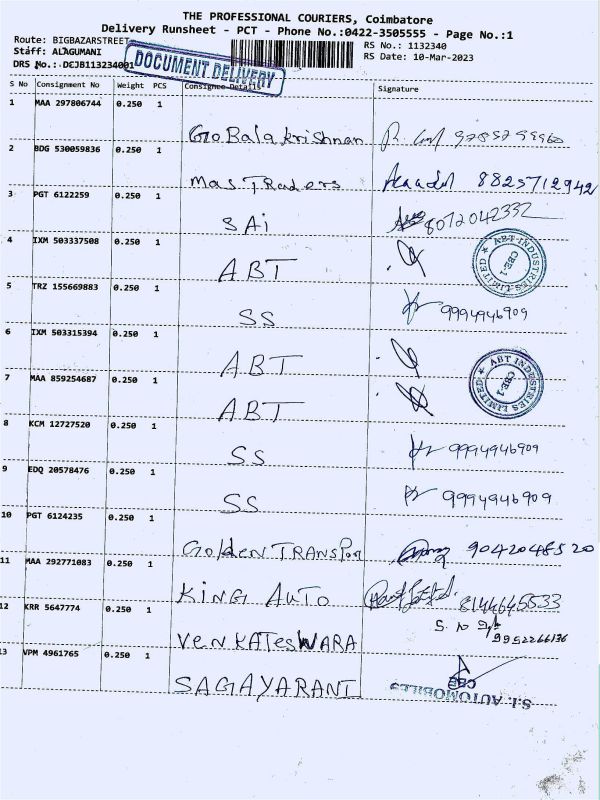 THE PROFESSIONAL COURIERS, Coimbatore
Delivery Runsheet - PCT - Phone No.:0422-3505555 - Page No.:1
Route: BIGBAZARSTREET
RS No.: 1132340
Staff: ALAGUMANI
RS Date: 10-Mar-2023
DRS No.: DCJB113234001
DOCUMENT DELIVERY
S No Consignment No Weight PCS Consignee Details Signature
1 MAA 297806744 0.250 1
Gro Bala krishnan
2 BDG 530059836 0.250 1
Mas Traders 8825712942
3 PGT 6122259 0.250 1
SAi 8072042332
4 IXM 503337508 0.250 1
ABT
ABT INDUSTRIES LIMITED CBE-1
5 TRZ 155669883 0.250 1
SS 9994946909
6 IXM 503315394 0.250 1
ABT
ABT INDUSTRIES LIMITED CBE-1
7 MAA 859254687 0.250 1
ABT
8 KCM 12727520 0.250 1
SS 9994946909
9 EDQ 20578476 0.250 1
SS 9994946909
10 PGT 6124235 0.250 1
Golden TRANSPor 9042048520
11 MAA 292771083 0.250 1
KING AUTO 8144645533
12 KRR 5647774 0.250 1
VenKATesWARA 9952266136
13 VPM 4961765 0.250 1
SAGAYARANI
S.I. AUTOMOBILES
CBE